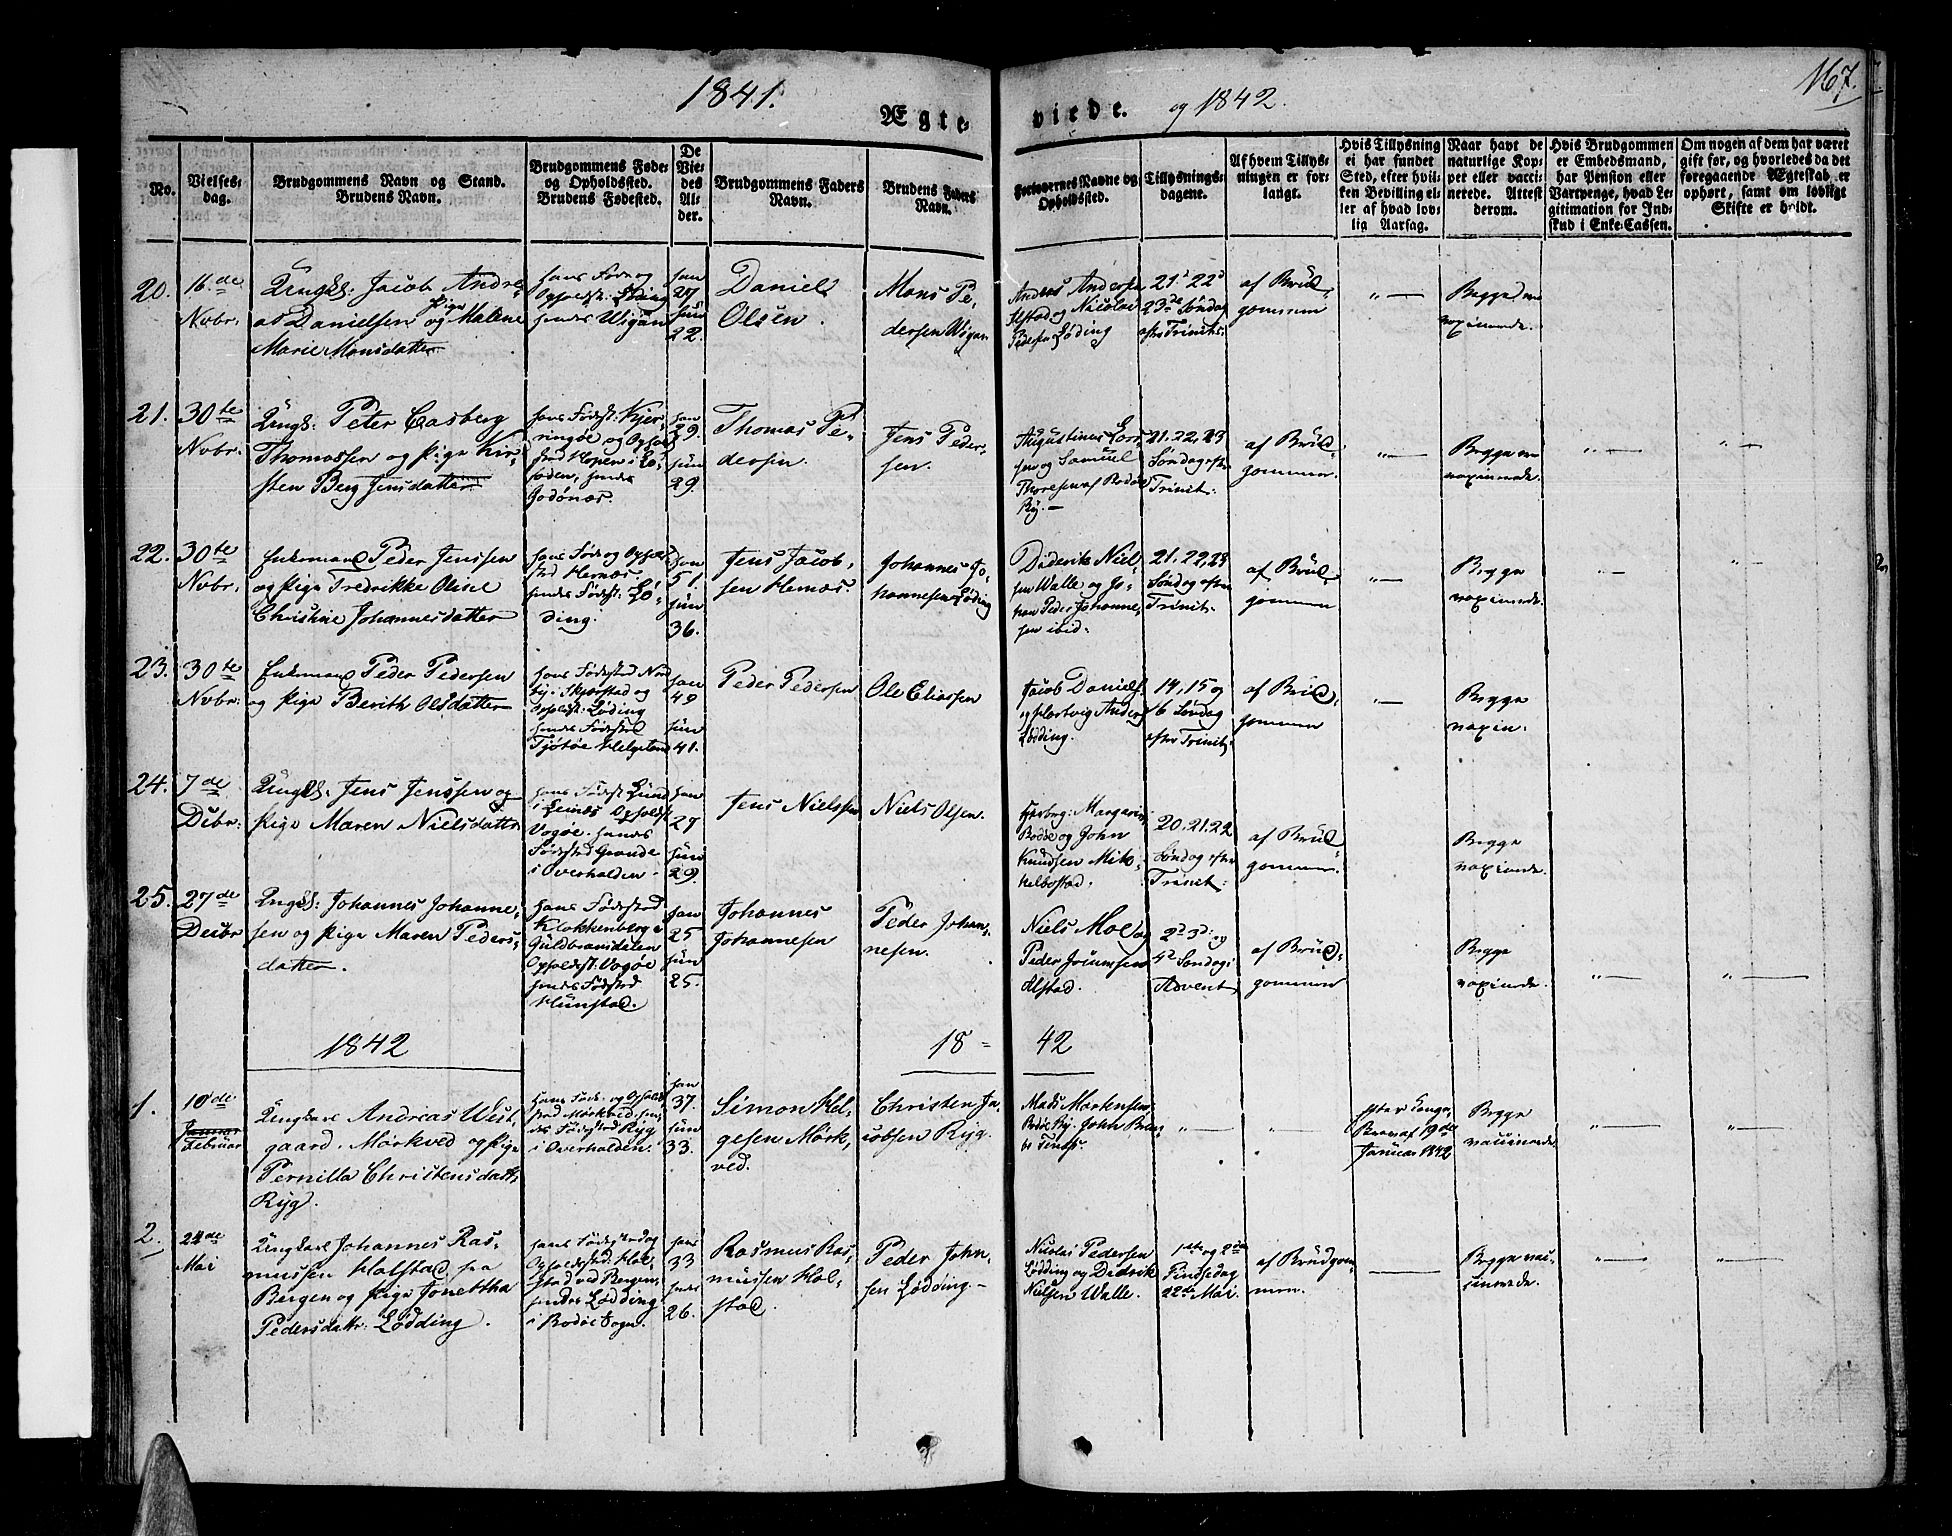 1841.
Ægte-
viede.
og 1842.
167.
No.
Vielses-
dag.
Brudgommens Navn og Stand.
Brudens Navn.
Brudgommens Føde-
og Opholdssted.
Brudens Fødested.
De
Vie-
des
Al-
der.
Brudgommens Faders
Navn.
Brudens Faders
Navn.
Forlovernes Navne og
Opholdssted.
Tillysnings-
dagene.
Af hvem Tillys-
ningen er for-
langt.
Hvis Tillysning
ei har fundet
Sted, efter hvil-
ken Bevilling el-
ler af hvad lov-
lig Aarsag.
Naar havt de
naturlige Kop-
per eller vacci-
nerede. Attest
derom.
Hvis Brudgommen
er Embedsmand,
har Pension eller
Vartpenge, hvad Le-
gitimation for Ind-
skud i Enke-Cassen.
Om nogen af dem har været
gift før, og hvorledes da det
foregaaende Ægteskab er
ophørt, samt om lovligt
Skifte er holdt.
20.
16de
Nvbr.
Ungk. Jacob Andre-
as Danielsen og Pige Malene
Marie Monsdatter
hans Føde og
Opholdst. Løding
hendes
han
27
hun
22.
Daniel
Olsen.
Mons Pe-
dersen
Anders Andersen
Alstad og Nicolai
Pedersen Løding
21de 22de
23de Søndag
eftr Trinits.
af Brud-
gommen
" —
Begge va-
xinerede.
21.
30te
Nvbr.
Ungk. Peter Casberg
Thomassen og Pige Kir-
sten Berg Jensdatter
hans Fødest: Kjer-
ringøe og Ophol
sted Hopen i Lo-
foden, hendes
han
29.
hun
29.
Thomas Pe-
dersen.
Jens Peder-
sen.
Augustinus
sen og Samuel
Thoresen af Bodøe
By. —
21. 22, 23
Søndag eftr
Trinit:
af Brud-
gommen.
" —
Begge va-
xinerede.
" —
" —
22.
30te
Nvbr.
Enkemand Peder Jenssen
og Pige Fredrikke Oline
Christine Johannesdatter
hans Føde og Ophold
sted Hernæs.
hendes Fødest: Lö-
ding.
han
51.
hun
36.
Jens Jacob-
sen Hernæs.
Johannes Jo-
hannesen Löding
Diderik Niel-
sen Walle og Jo-
han Peder Johanne-
sen ibid:
21. 22, 23
Søndag eftr
Trinit:
af Brud-
gommen
" —
Begge
vaxinerede.
" —
" —
23.
30te
Nvbr.
Enkemand Peder Pedersen
og Pige Berith Olsdatter
hans Fødested Nord
by i Skjerstad og
Opholdst: Løding
hendes Fødested
Tjötöe Helgeland
han
49
hun
41.
Peder Pedersen
Ole Eliassen
Jacob Daniels.
og Hartvig Anders
Lødding.
14, 15 og
16 Søndag
eftr Trinit:
af Brud-
gommen
" —
Begge
vaxin.
24.
7de
Debr.
Ungk. Jens Jenssen og
Pige Maren Nielsdattr
hans Fødested Lund
i Leines Opholdst
Vogöe. hendes
Fødested Grande
i Overhalden.
han
27
hun
29.
Jens Nielssen
Niels Olsen.
Margarin
Bodøe og John
Knudsen Mik-
kelbostad.
20. 21. 22
Søndag eftr
Trinit:
af Brud-
gommen.
Begge
vaxinerede.
25.
27de
Decbr
Ungk: Johannes Johanne-
sen og Pige Maren Peders-
datter.
hans Fødested
Klokkenberg i
Guldbransdalen
Opholdst: Vogöe
hendes Fødested
Hunstad.
han
25
hun
25.
Johannes
Johannesen
Peder Johan-
nesen.
Niels Moe og
Peder Joiumsen
Alstad.
2d 3d og
4d Søndag i
Advent
af Brud-
gommen
Begge
vaxinerede.
" —
" —
1842
18 -
42
1.
10de
Januar
Februar
Ungkarl Andreas West-
gaard. Mörkved og Pige
Pernilla Christensdattr
Ryg.
hans Føde- og Opholds
sted Mörkved. hen-
des Fødested Ryg
i Overhalden.
han
37.
hun
33.
Simon Hel-
gesen Mörk-
ved.
Christen Ja-
cobsen Ryg.
Mads Mortensen
Bodøe By. John
" —
"
efter Konge-
Brev af 19de
Januar 1842
Begge
vaccinerede.
" —
" —
2.
22de
Mai
Ungkarl Johannes Ras-
mussen Holstad fra
Bergen og Pige Jonettha
Pedersdattr Lödding.
hans Fødested og
Opholdssted Hol-
stad ved Bergen.
hendes Lødding
i Bodøe Sogn.
hans
33
hendes
26.
Rasmus Ras-
mussen Hol-
stad.
Peder John-
sen Lödding—
Nicolai Pedersen
Lödding og Didrik
Nielsen Walle.
1ste og 2den
Pindsedag
22de Mai.
af Brudgom-
men.
—
Begge vac-
cinerede.
" —
" —